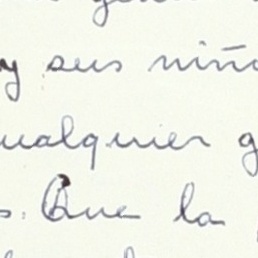 y sus niño
ualquier g
s. Que la